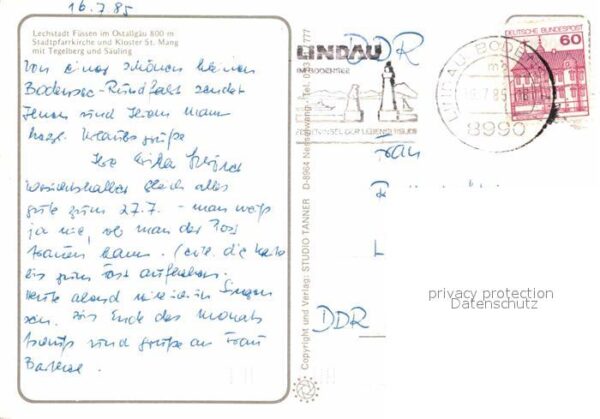 16.7.85
Lechstadt Füssen im Ostallgäu 800 m
Stadtpfarrkirche und Kloster St. Mang
mit Tegelberg und Säuling
Von einer schönen kleinen
Bodensee-Rundfahrt sendet
Ihnen und Ihrem Mann
herzl. Urlaubsgrüße
Ihre Erika
Vorsichtshalber gleich alles
gute zum 27.7. - man weiß
ja nie, ob man der Post
trauen kann. die Karte
bis zum
Heute abend in Singen
sein. Bis Ende des Monats
und grüße an Frau
Copyright und Verlag: STUDIO TANNER D-8964 Nesselwang · Tel.
777
DDR
LINDAU
IM BODENSEE
DEUTSCHE BUNDESPOST
60
LINDAU BODENSEE
.7.85
8990
Frau
DDR
privacy protection
Datenschutz